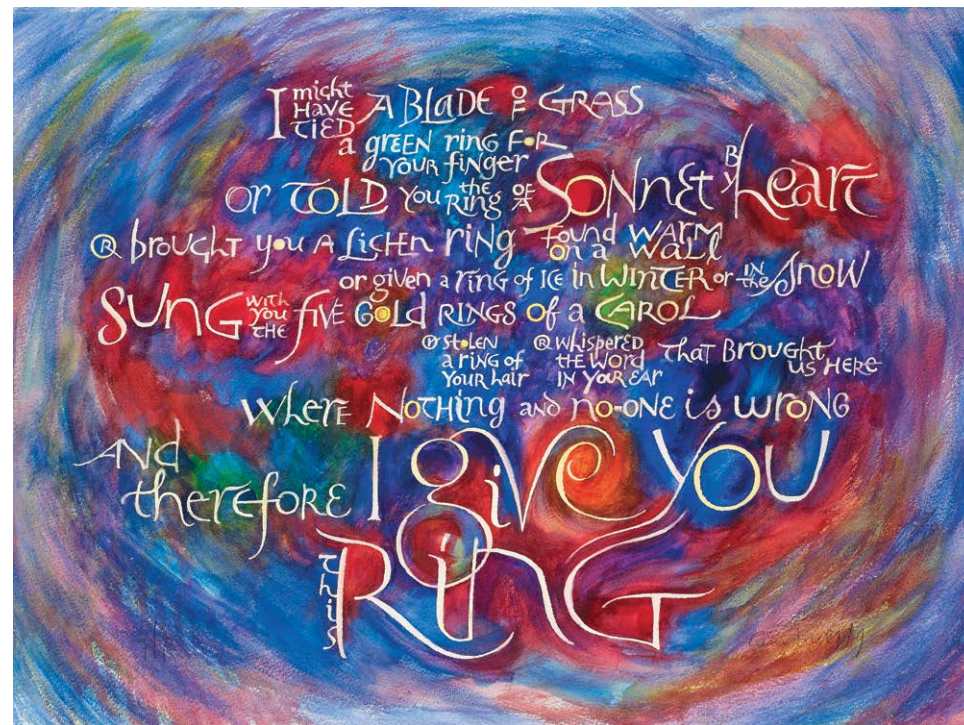 I might HAVE TIED A BLADE OF GRASS
a GREEN ring FOR YOUR finger
or TOLD YOU the RING OF A SONNET BY heart
OR brought you A LICHEN ring found WARM on a WALL
or given a ring of ICE in WINTER or IN the SNOW
SUNG with you THE FIVE GOLD RINGS of a CAROL
OR STOLEN a RING of YOUR hair OR WHISPERED THE WORD IN YOUR EAR THAT BROUGHT US HERE
WHERE NOTHING AND no-one is WRONG
AND therefore I GIVE YOU
This RING